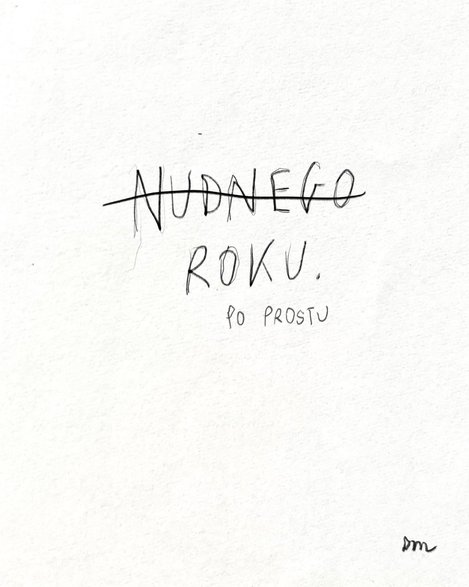 NUDNEGO
ROKU.
PO PROSTU
DM